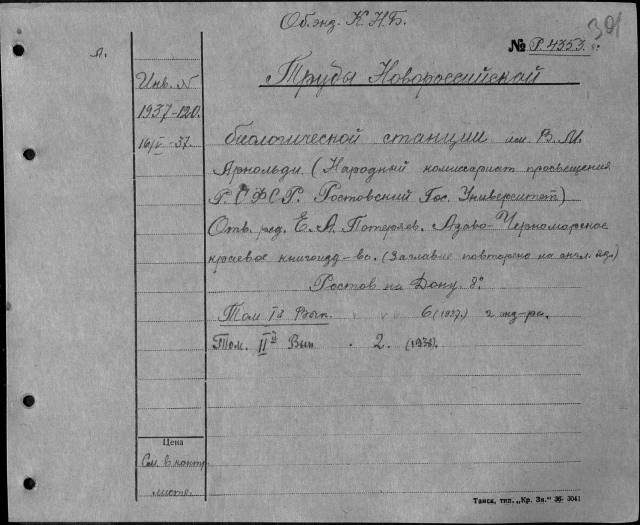 Об. энд. К.Н.Б.
391
№ Р. 4353.
л.
Инв. N
1937-120.
16/V-37.
Труды Новороссийской
биологической станции им. В. М.
Арнольди. (Народный комиссариат просвещения
Р.С.Ф.С.Р. Ростовский Гос. Университет)
Отв. ред. Е. А. Потеряев. Азово-Черноморское
краевое книгоизд-во. (Заглавие повторено на англ. яз.)
Ростов на Дону. 8°
Том Iй Вып. " " " 6 (1937.) 2 экз-ра.
Том. IIй Вып. 2. (1938).
Цена
См. в контр.
листе.
Танск, тип. „Кр. Зн." 36- 3041